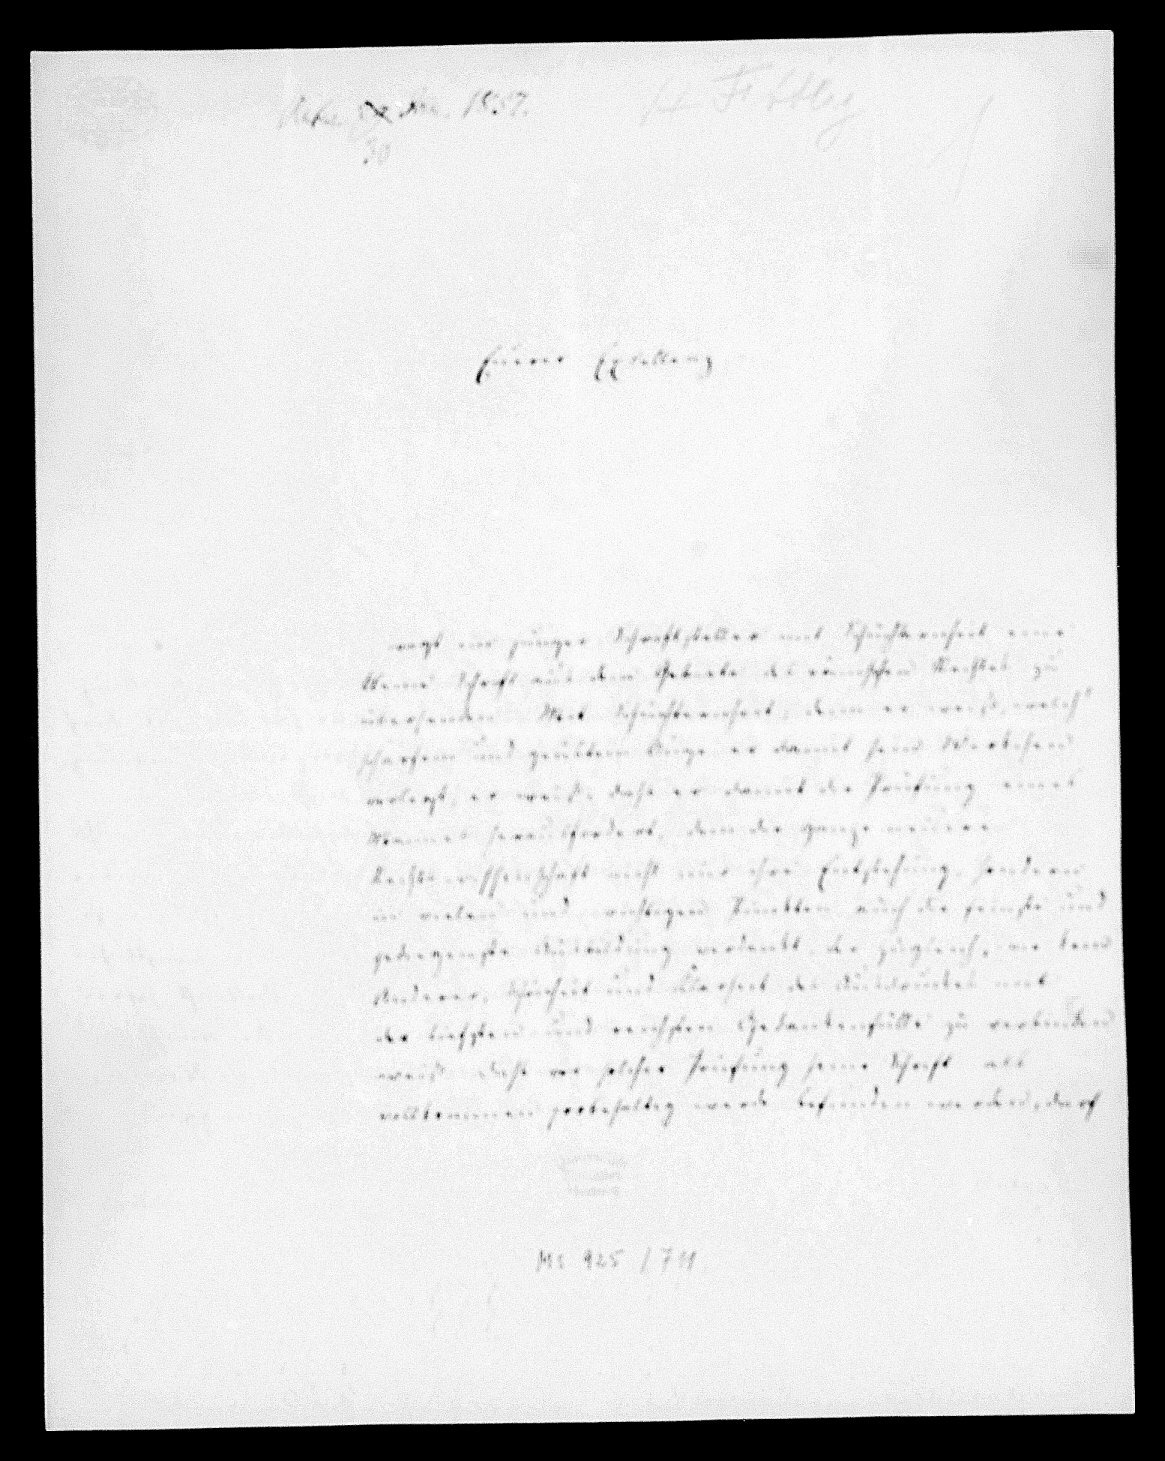 1857.
30
Eurer Exzellenz
wagt ein junger Schriftsteller mit Schüchternheit eine
kleine Schrift aus dem Gebiete des römischen Rechtes zu
übersenden. Mit Schüchternheit, denn er weiß, welch'
scharfem und geübtem Auge er damit sein Werkchen
vorlegt, er weiß, daß er damit die Prüfung eines
Mannes herausfordert, dem die ganze neuere
Rechtswissenschaft nicht nur ihre Entstehung, sondern
in vielen und wichtigen Punkten auch die feinste und
gediegenste Ausbildung verdankt, der zugleich, wie kein
Anderer, Schönheit und Klarheit des Ausdruckes mit
der tiefsten und reichsten Gedankenfülle zu verbinden
weiß. Daß vor solcher Prüfung seine Schrift als
vollkommen probehaltig werde befunden werden, darf
Ms 925 / 711